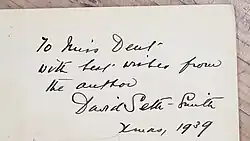 To Miss Dent
with best wishes from
the author
David Seth-Smith
Xmas, 1939